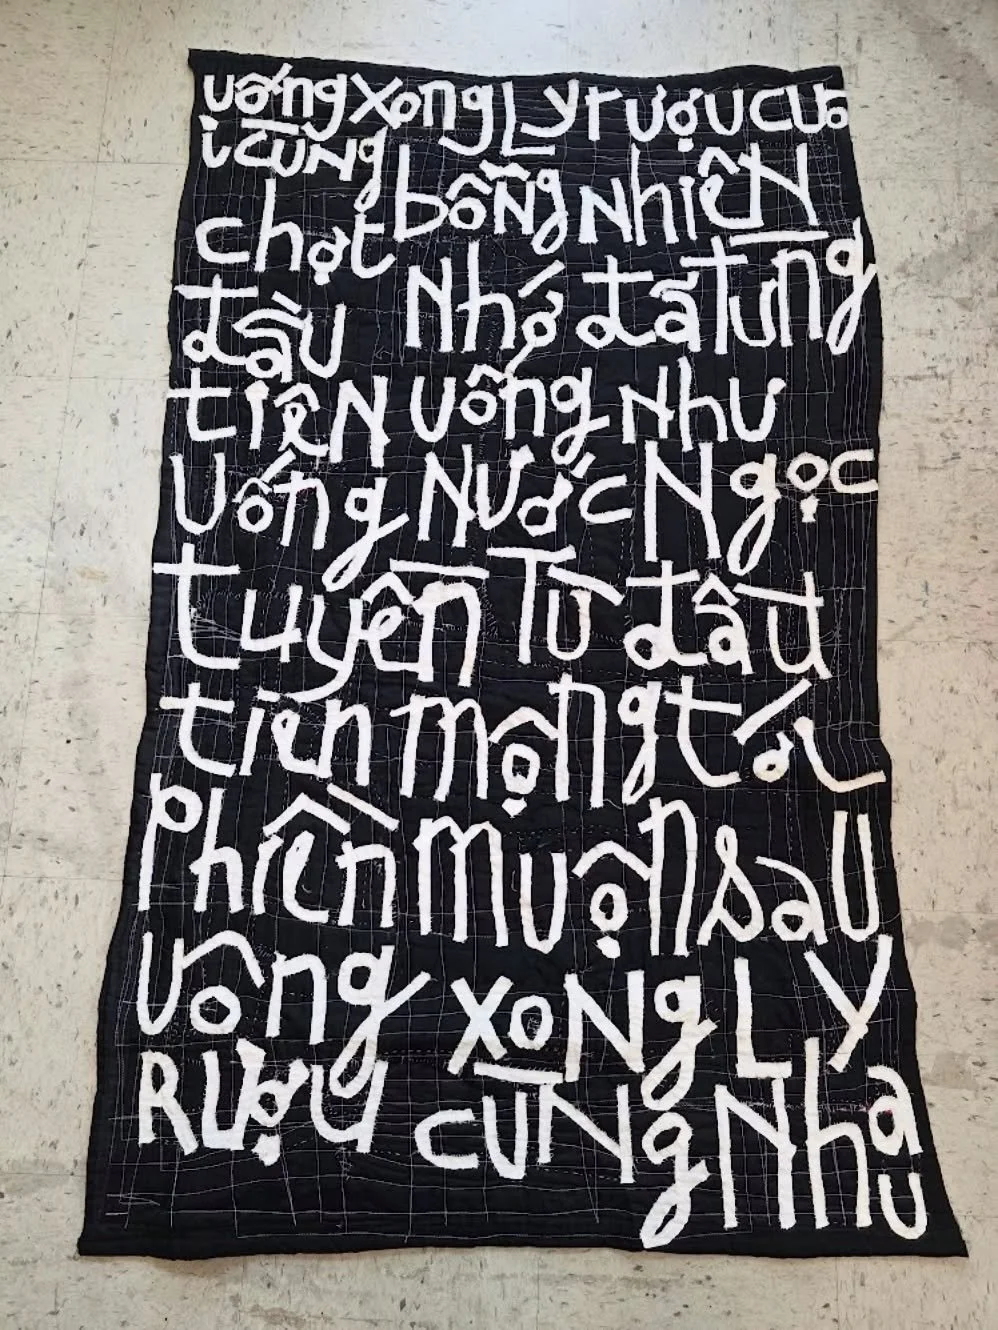 uống xong Ly rượu cuố
i cùng
chợt bỗng nhiêN
đầu Nhớ đã từng
tiêN uống Như
Uống Nước Ngọc
tuyền Từ đầu
tiên mộng tới
Phiền muộn sau
uống xoNg Ly
Rượu cùNg Nha
u